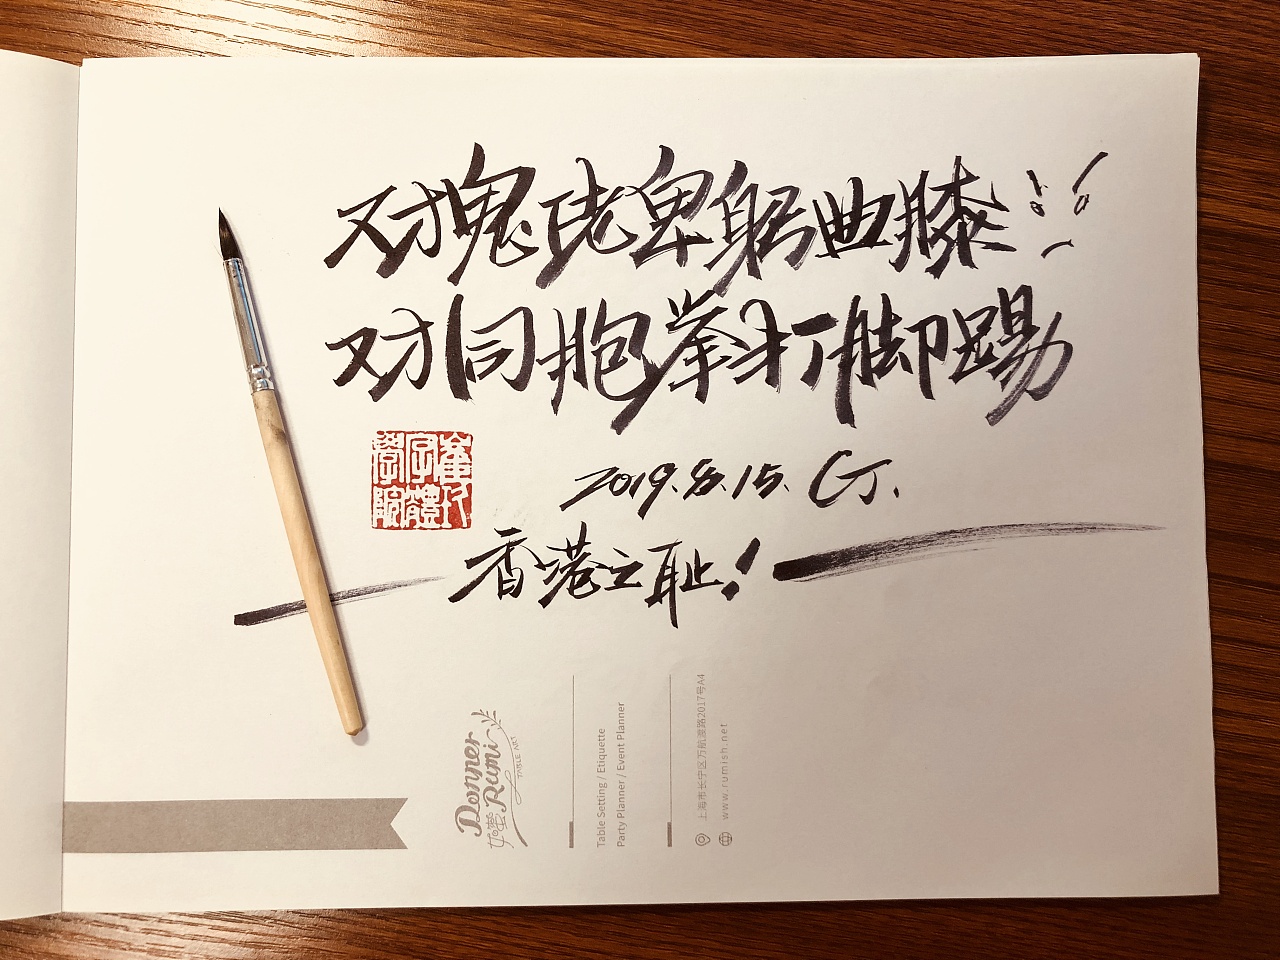 对鬼佬卑躬曲膝
对同胞拳打脚踢
2019.8.15. GJ.
香港之耻!
崔巧
字體
學院
Donner
Rumi
TABLE ART
Table Setting / Etiquette
Party Planner / Event Planner
上海市长宁区万航渡路2017号A4
www.rumish.net